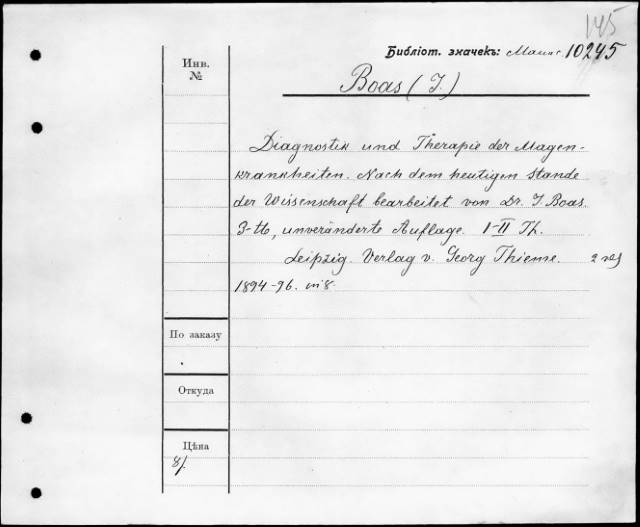 145
Библіот. значекъ: Маши. 10245
Инв.
№
Boas (J.)
Diagnostik und Therapie der Magen-
krankheiten. Nach dem heutigen Stande
der Wissenschaft bearbeitet von Dr. J. Boas.
3-te, unveränderte Auflage. I-II Th.
Leipzig. Verlag v. Georg Thieme.
1894-96. in 8.
По заказу
Откуда
Цѣна
8/.